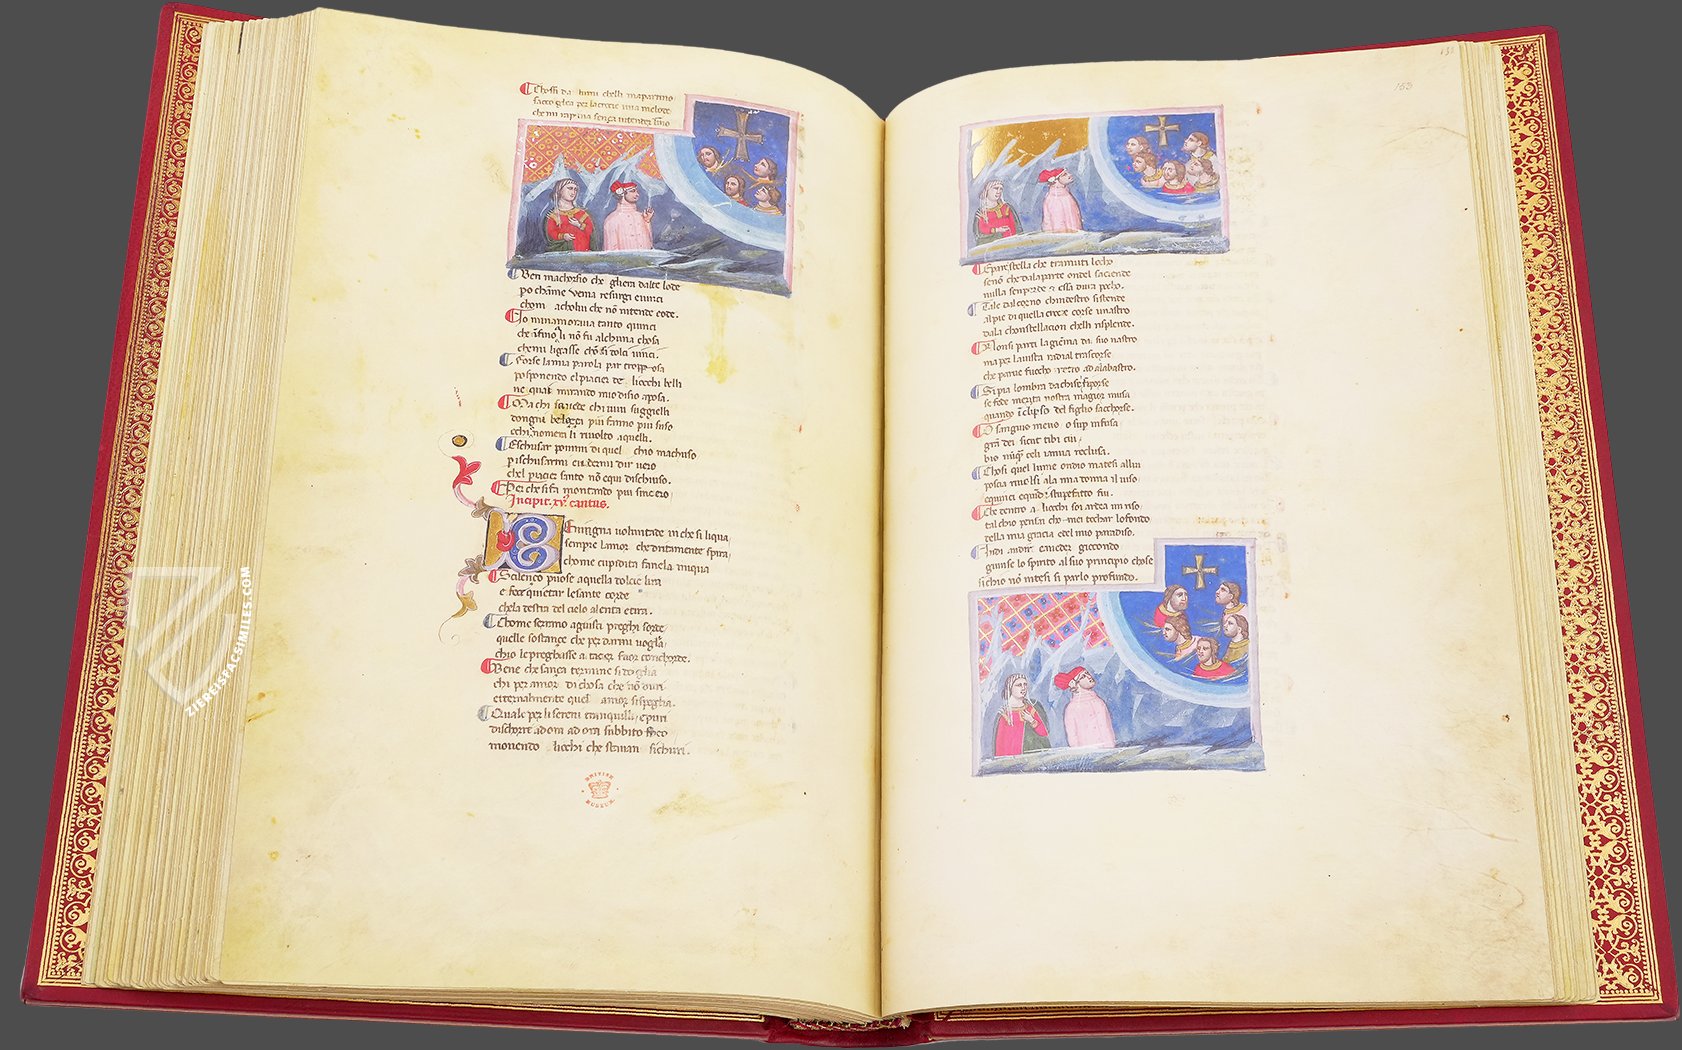 Chosi da lumi chelli mapartino
sacoglea per la croce una melode
che mi rapina senza intender linno
Ben machorsio che gliera dalte lode
po chãme venia resurgi e vinci
chom acholui che nõ intende e ode.
Io minamorava tanto quinci
che ĩfino li nõ fu alchuna chosa
che mi ligasse chõ si dolci vinci.
Forse la mia parola par tropp osa
posponendo el piacer de liocchi belli
ne quai mirando mio disio a posa.
Ma chi savede chi vivi suggielli
dongni belleza piu fanno piu suso
e chi nomera li rivolto a quelli.
Eschusar pommi di quel chio machuso
p ischusarmi e vedermi dir vero
chel piacer santo nõ e qui dischiuso.
Per che si fa montando piu sincero
Incipit .xv. cantus.
Beningna voluntade in che si liqua
sempre lamor che dritamente spira
chome cupidita fa nela iniqua
Scilenço puose a quella dolcie lira
e fece quietar le sante corde
che la destra del cielo alenta e tira.
Chome seranno a giusti preghi sorde
quelle sostançe che per darmi voglia
chio le preghasse a tacer fuor conchorde.
Bene che sança termine si doglia
chi per amor di chosa che nõ duri
etternalmente quel amor si spoglia.
Quale per li sereni tranquilli e puri
dischorre ad ora ad ora subbito foco
movendo liocchi che stavan sichuri.
BRITISH
MUSEUM
153
E pare stella che tramuti locho
senõ che dala parte ondel sacende
nulla sen perde e essa dura pocho.
Tale dal corno chin destro si stende
al pie di quella croce corse un astro
dala chonstellacion che li risplende.
Ne si parti la giema dal suo nastro
ma per la lista radial trascorse
che parve fuocho retro ad alabastro.
Si pia lombra danchise si porse
se fede merita nostra magior musa
quando ĩ elipso del figlio sacchorse.
O sanguis meus o sup infusa
gra dei sicut tibi cui
bis nũq celi ianua reclusa.
Chosi quel lume ondio matesi allui
poscia rivolsi ala mia donna il viso
e quinci e quindi stupefatto fui.
Che dentro a liocchi soi ardea un riso
tal chio pensa cho mei tochar lo fondo
della mia gracia e del mio paradiso.
Indi audir e a veder giocondo
giunse lo spirito al suo principio chose
si chio nõ intesi si parlo profundo.
ZIEREISFACSIMILES.COM